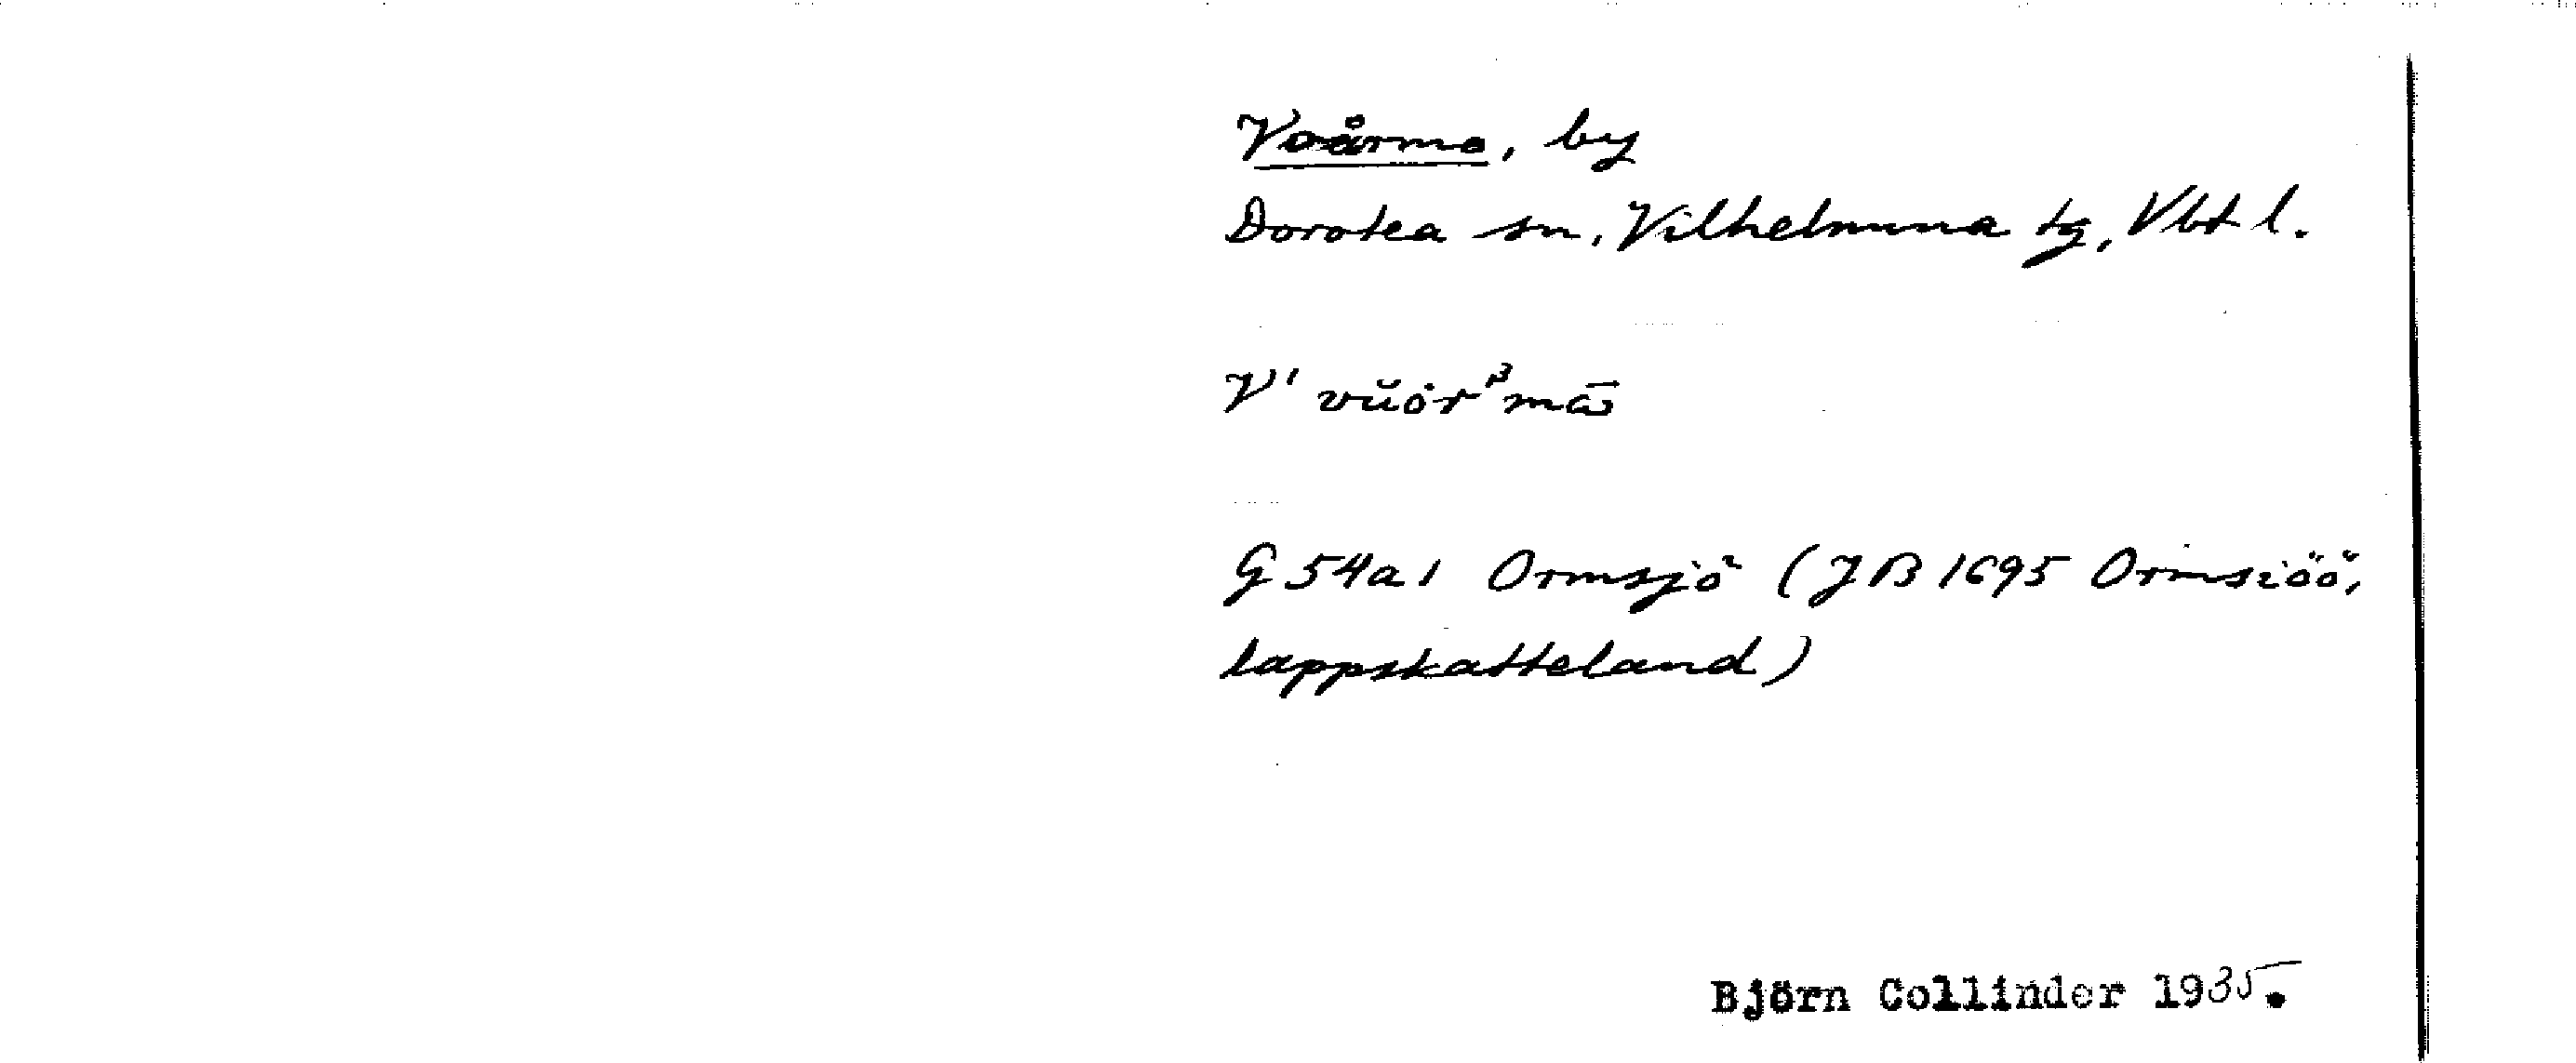 Voårme, by
Dorotea sn, Vilhelmina tg, Vbt l.
V' vŭȯrᵝmā
G 54a1 Ormsjö (JB 1695 Ormsiöö,
lappskatteland)
Björn Collinder 1935.